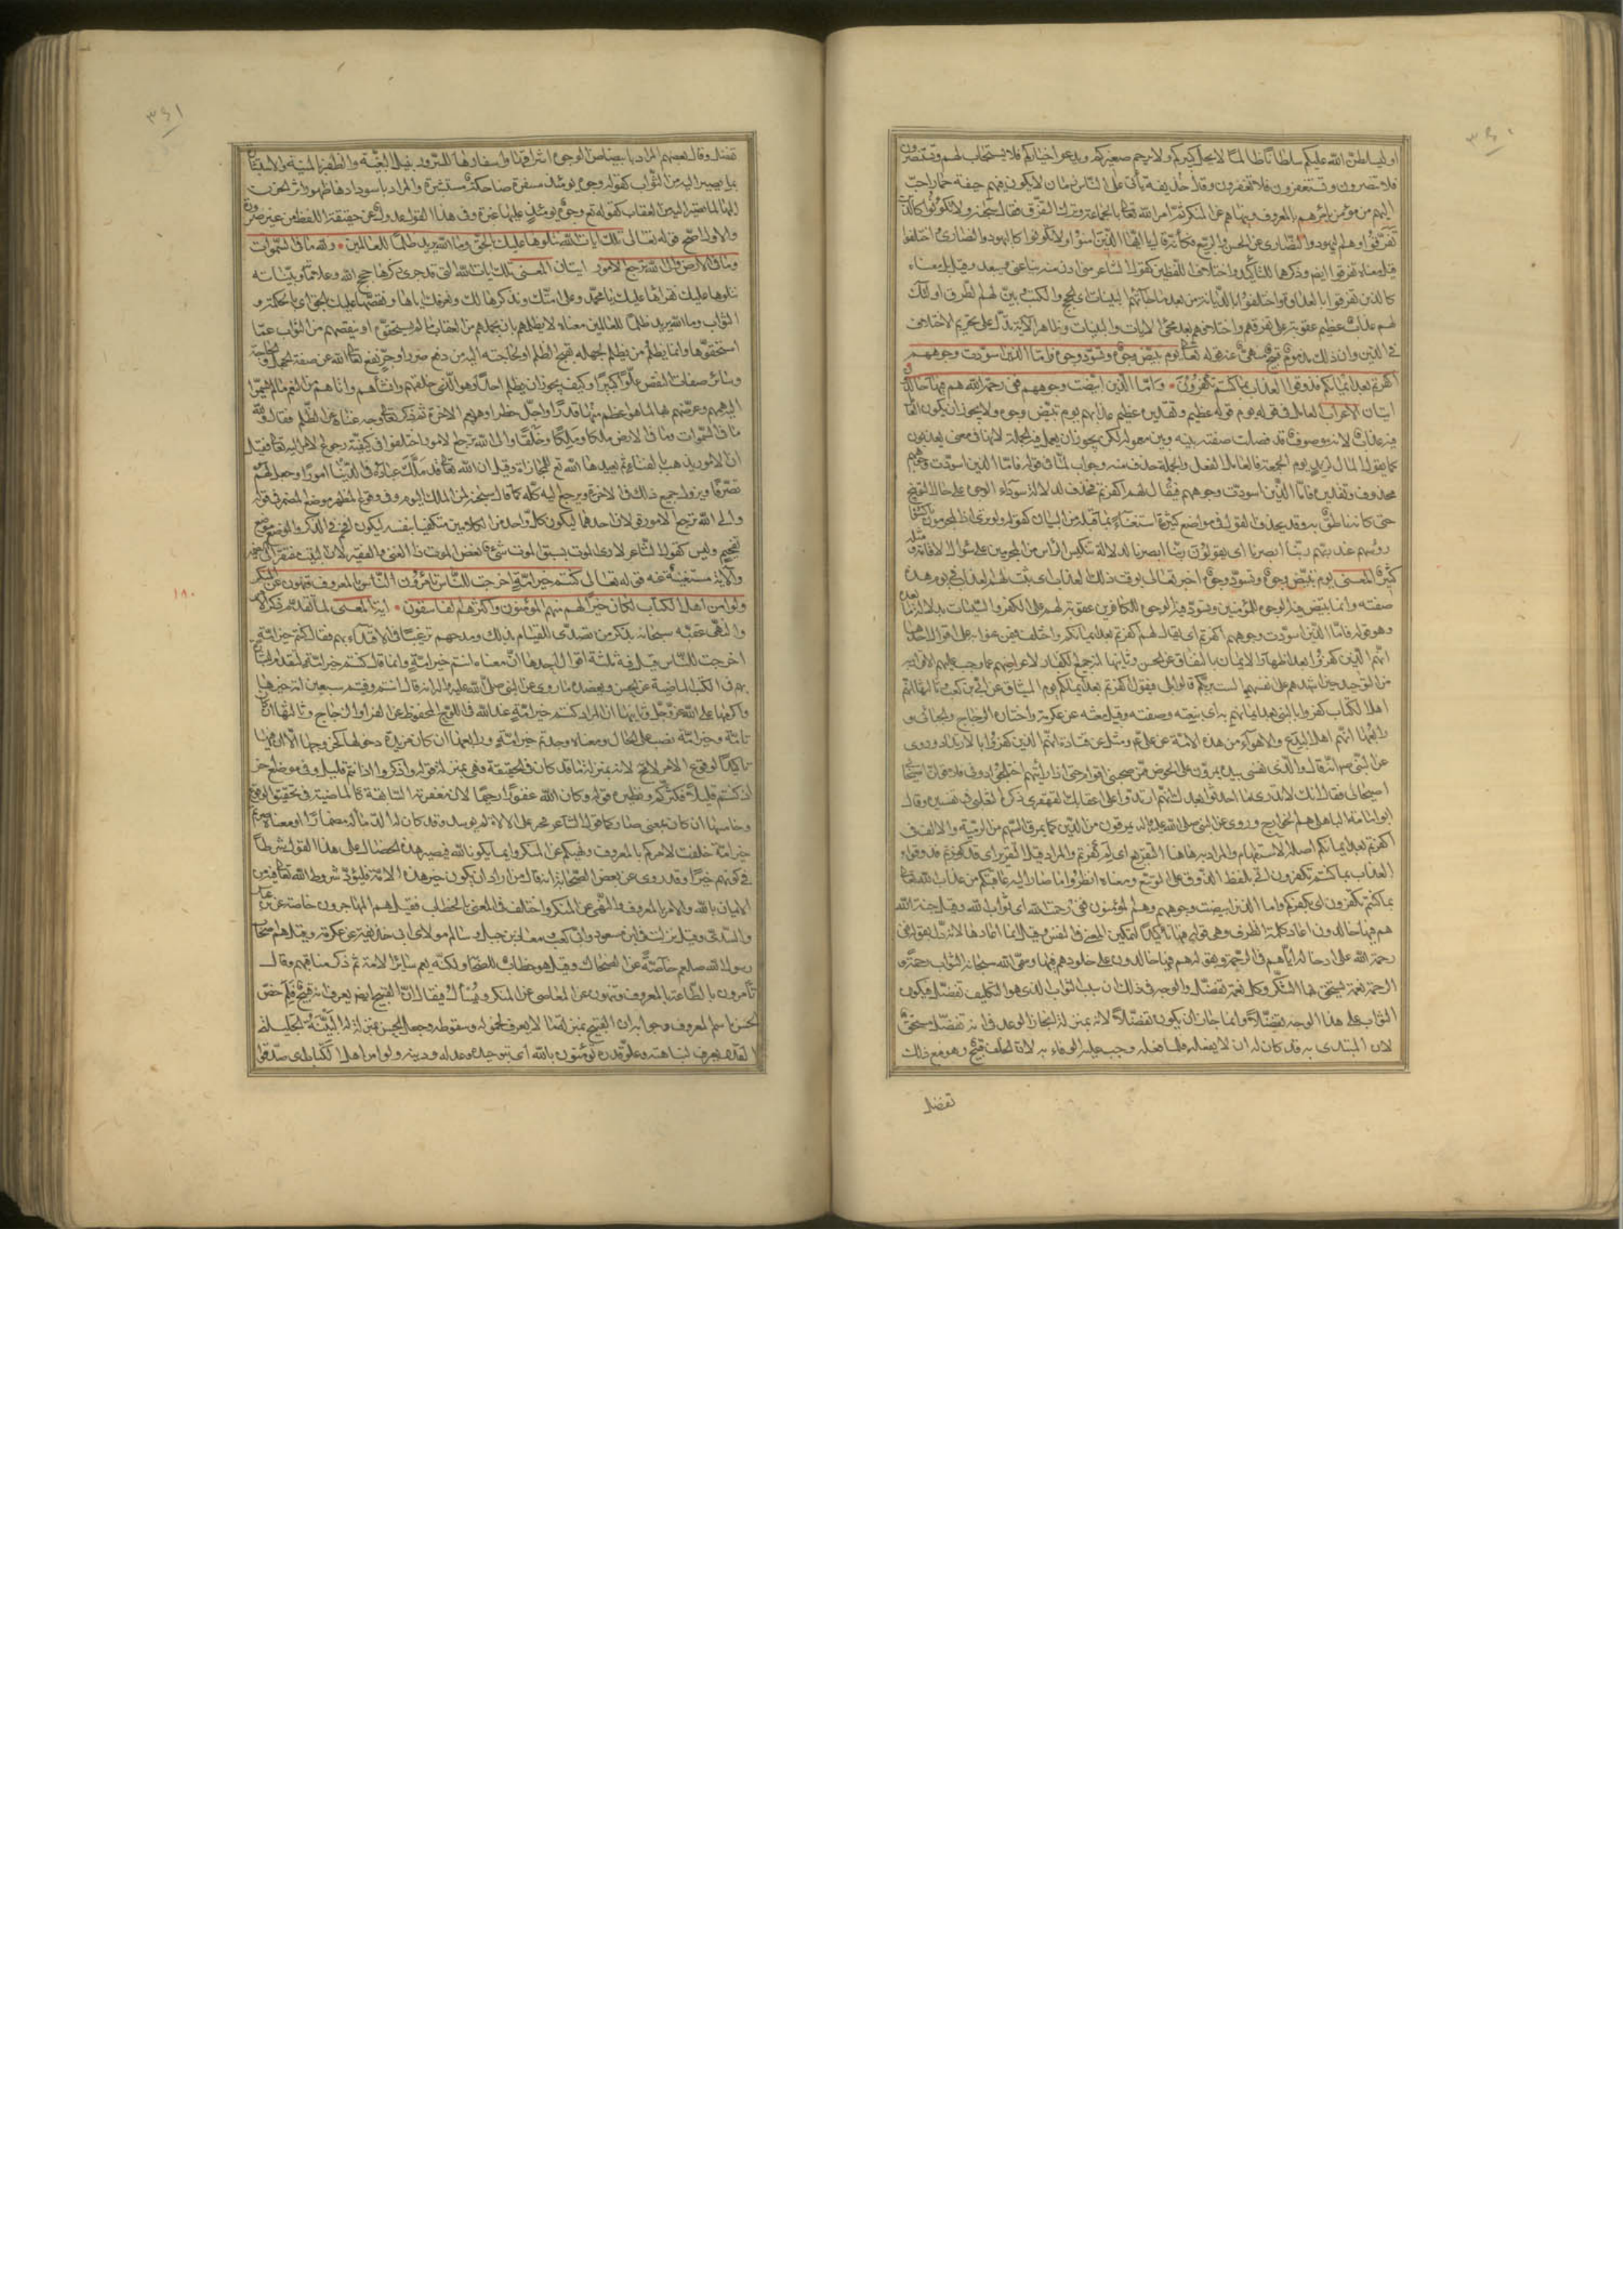 ٣٤٠
او ليسلطن الله عليكم سلطانا ظالما لا يجل كبيركم ولا يرحم صغيركم ويدعو اخياركم فلا يستجاب لهم وتستنصرون
فلا تنصرون وتستغفرون فلا تغفرون وقال حذيفة يأتى على الناس زمان لان يكون فيهم جيفة حمار احب
اليهم من مؤمن يامرهم بالمعروف وينهاهم عن المنكر ثم امر الله تعالى بالجماعة وترك التفرق فقال سبحانه ولا تكونوا كالذين
تفرقوا وهم اليهود والنصارى عن الحسن والربيع فكأنه قال يا ايها الذين امنوا ولا تكونوا كاليهود والنصارى واختلفوا
قيل معناه تفرقوا ايضا وذكرهما للتأكيد واختلاف اللفظين كقول الشاعر متى ادن منه ينأ عنى ويبعد وقيل معناه
كالذين تفرقوا بالعداوة واختلفوا بالديانة من بعد ما جاءتهم البينات اى الحجج والكتب وبين لهم الطرق اولئك
لهم عذاب عظيم عقوبة على تفرقهم واختلافهم بعد مجئ الايات والبينات وظاهر الاية يدل على تحريم الاختلاف
فى الدين وان ذلك مذموم قبيح منهى عنه قوله تعالى يوم تبيض وجوه وتسود وجوه فاما الذين اسودت وجوههم
اكفرتم بعد ايمانكم فذوقوا العذاب بما كنتم تكفرون واما الذين ابيضت وجوههم ففى رحمة الله هم فيها خالدون
ايتان الاعراب العامل فى قوله يوم قوله عظيم وتقديره عظيم عذابهم يوم تبيض وجوه ولا يجوز ان يكون العامل
فيه عذاب لانه موصوف قد فصلت صفته بينه وبين معموله لكن يجوز ان يعمل فيه الجملة لانها فى معنى يعذبون
كما يقول المال لزيد يوم الجمعة فالعامل الفعل والجملة خلف منه وجواب اما فى قوله فاما الذين اسودت وجوههم
محذوف وتقديره فاما الذين اسودت وجوههم فيقال لهم اكفرتم فحذف لدلالة سوداء الوجوه على حال التوبيخ
حتى كانه ناطق به وقد يحذف القول فى مواضع كثيرة استغناء بما قبله من البيان كقوله ولو ترى اذ المجرمون ناكسوا
رؤسهم عند ربهم ربنا ابصرنا اى يقولون ربنا ابصرنا لدلالة تنكيس الراس من المجرمين على سؤال الاقالة ومثله
كثير المعنى يوم تبيض وجوه وتسود وجوه اخبر تعالى بوقت ذلك العذاب اى يثبت لهم العذاب فى يوم هذه
صفته وانما تبيض فيه الوجوه للمؤمنين وتسود فيه الوجوه للكافرين عقوبة لهم على الكفر والسيئات بدلالة ما بعده
وهو قوله فاما الذين اسودت وجوههم اكفرتم اى يقال لهم اكفرتم بعد ايمانكم واختلف فيمن عنوا به على اقوال احدها
انهم الذين كفروا بعد اظهار الايمان بالنفاق عن الحسن وثانيها انه جميع الكفار لاعراضهم عما وجب عليهم الاقرار به
من التوحيد حين اشهدهم على انفسهم الست بربكم قالوا بلى فيقول اكفرتم بعد ايمانكم يوم الميثاق عن ابى بن كعب وثالثها انهم
اهل الكتاب كفروا بالنبى بعد ايمانهم به اى بنعته وصفته وقيل مبعثه عن عكرمة واختاره الزجاج والجبائى و
رابعها انهم اهل البدع والاهواء من هذه الامة عن على ع ومثله عن قتادة انهم الذين كفروا بالارتداد وروى
عن النبى ص انه قال والذى نفسى بيده ليردن على الحوض ممن صحبنى اقوام حتى اذا رأيتهم اختلجوا دونى فلاقولن اصيحابى
اصيحابى فقال انك لا تدرى ما احدثوا بعدك انهم ارتدوا على اعقابهم القهقرى ذكره الثعلبى فى تفسيره وقال
ابو امامة الباهلى هم الخوارج وروى عن النبى صلى الله عليه واله يمرقون من الدين كما يمرق السهم من الرمية والالف فى
اكفرتم بعد ايمانكم اصله الاستفهام والمراد به هاهنا التقريع اى لم كفرتم والمراد قيل التقرير اى قد كفرتم فذوقوا
العذاب بما كنتم تكفرون اتى بلفظ الذوق على التوسع ومعناه انظروا ما صار اليه عاقبتكم من عذاب الله تعالى
بما كنتم تكفرون اى بكفركم واما الذين ابيضت وجوههم وهم المؤمنون ففى رحمة الله اى ثواب الله وقيل جنة الله
هم فيها خالدون اعاد كلمة الظرف وهى قوله فيها تأكيدا لتمكين المعنى فى النفس وقيل انما اعادها لانه دل بقوله ففى
رحمة الله على ادخاله اياهم فى الرحمة وبقوله هم فيها خالدون على خلودهم فيها وسمى الله سبحانه الثواب رحمة و
الرحمة نعمة يستحق بها الشكر وكل نعمة تفضل والوجه فى ذلك ان سبب الثواب الذى هو التكليف تفضل فيكون
الثواب على هذا الوجه تفضلا وانما جاز ان يكون تفضلا لانه بمنزلة انجاز الوعد فى انه تفضل مستحق
لان المبتدى به قد كان له ان لا يفعله فلما فعله وجب عليه الوفاء به لان الخلف قبيح وهو مع ذلك
تفضل
٣٤١
تفضل وقال بعضهم المراد بابيضاض الوجوه اشراقها واسفارها للسرور بنيل البغية والظفر بالمنية والاستبشار
بما يصير اليه من الثواب كقوله وجوه يومئذ مسفرة ضاحكة مستبشرة والمراد باسودادها ظهور اثر الحزن
عليها لما تصير اليه من العقاب كقوله تع وجوه يومئذ عليها غبرة وفى هذا القول عدول عن حقيقة اللفظ من غير ضرورة
والاول اصح قوله تعالى تلك ايات الله نتلوها عليك بالحق وما الله يريد ظلما للعالمين ولله ما فى السموات
وما فى الارض والى الله ترجع الامور ايتان المعنى تلك ايات الله التى قد جرى ذكرها حجج الله وعلاماته وبيناته
نتلوها عليك نقرأها عليك يا محمد وعلى امتك ونذكرها لك ونعرفك اياها ونقصها عليك بالحق اى بالحكمة و
الثواب وما الله يريد ظلما للعالمين معناه لا يظلمهم بان يحملهم من العقاب ما لم يستحقوه او ينقصهم من الثواب عما
استحقوه وانما يظلم من يظلم لجهله بقبح الظلم او لحاجته اليه من دفع ضرر او جر نفع تعالى الله عن صفة الجهل والحاجة
وسائر صفات النقص علوا كبيرا وكيف يجوز ان يظلم احدا وهو الذى خلقهم وانشأهم واتاهم من النعم ما لم يسموا
اليه هممهم وعرضهم بها لما هو اعظم منها قدرا واجل خطرا وهو نعيم الاخرة ثم ذكر تعالى وجه غناه عن الظلم فقال ولله
ما فى السموات وما فى الارض ملكا وملكا وخلقا والى الله ترجع الامور اختلفوا فى كيفية رجوع الامر اليه تعالى فقيل
ان الامور يذهب بالفناء ثم يعيدها الله تع للمجازاة وقيل ان الله تعالى قد ملك عباده فى الدنيا امورا وجعل لهم
تصرفا ويزول جميع ذلك فى الاخرة ويرجع اليه كله كما قال سبحانه لمن الملك اليوم وفى وقوع المظهر موضع المضمر فى قوله
والى الله ترجع الامور قولان احدهما ليكون كل واحد من الكلامين مكتفيا بنفسه ليكون افخم فى الذكر والموضع موضع
تفخيم وليس كقول الشاعر لا ارى الموت يسبق الموت شئ نغص الموت ذا الغنى والفقير لان البيت مفتقر الى الضمير
والاية مستغنية عنه قوله تعالى كنتم خير امة اخرجت للناس تأمرون بالمعروف وتنهون عن المنكر
١١٠
ولو امن اهل الكتاب لكان خيرا لهم منهم المؤمنون واكثرهم الفاسقون اية المعنى لما تقدم ذكر الامر
والنهى عقبه سبحانه بذكر من تصدى للقيام بذلك ومدحهم ترغيبا فى الاقتداء بهم فقال كنتم خير امة
اخرجت للناس قيل فيه ثلثة اقوال احدها ان معناه انتم خير امة وانما قال كنتم خير امة لتقدم البشارة
بهم فى الكتب الماضية عن الحسن ويعضده ما روى عن النبى صلى الله عليه واله انه قال انتم وفيتم سبعين امة خيرها
واكرمها على الله عز وجل وثانيها ان المراد كنتم خير امة عند الله فى اللوح المحفوظ عن الفراء والزجاج وثالثها ان كان
تامة وخير امة نصب على الحال ومعناه وجدتم خير امة ورابعها ان كان مزيدة دخولها كخروجها الا ان فيها
تأكيدا لوقوع الامر لا محالة لانه بمنزلة ما قد كان فى الحقيقة فهى بمنزلة قوله واذكروا اذ انتم قليل وفى موضع اخر
اذ كنتم قليلا فكثركم ونظيره قوله وكان الله غفورا رحيما لان مغفرته السابقة كالماضية فى تحقيق الوقوع
خير امة خلقت لامركم بالمعروف ونهيكم عن المنكر وايمانكم بالله فيصير هذه الخصال على هذا القول شرطا
فى كونهم خيرا وقد روى عن بعض الصحابة انه قال من اراد ان يكون خير هذه الامة فليؤد شروط الله تعالى فيه من
الايمان بالله والامر بالمعروف والنهى عن المنكر واختلف فى المعنى بالخطاب فقيل هم المهاجرون خاصة عن
والسدى وقيل نزلت فى ابن مسعود وابى بن كعب ومعاذ بن جبل وسالم مولى ابى حذيفة عن عكرمة وقيل هم اصحاب
رسول الله صلعم خاصة عن الضحاك وقيل هو خطاب للصحابة ولكنه يعم سائر الامة ثم ذكر مناقبهم وقال
تأمرون بالطاعة بالمعروف وتنهون عن المعاصى عن المنكر ويسأل فيقال ان القبيح ايضا يعرف انه قبيح فلم خص
الحسن باسم المعروف وجوابه ان القبيح بمنزلة ما لا يعرف لخموله وسقوطه وجعل الحسن بمنزلة النبيه الجليل
القدر يعرف لنباهته وعلو قدره وتؤمنون بالله اى بتوحيده وعدله ودينه ولو امن اهل الكتاب اى صدقوا